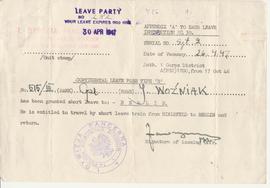 LEAVE PARTY
NO 282
YOUR LEAVE EXPIRES 2300 HRS
30 APR 1947
APPENDIX 'A' TO BAOR LEAVE
INSTRUCTION NO. 30.
SERIAL NO.
Date of 26.4.47.
Auth: 1 Corps District
from 17 Oct 46
(Unit stamp)
CONTINENTAL LEAVE PASS TYPE
No. 515/III (RANK) Cpl (NAME) J. WOŹNIAK
has been granted short leave to:- BERLIN
He is entitled to travel by short leave train from BIELEFELD to BERLIN and
return.
Signature of Issuing